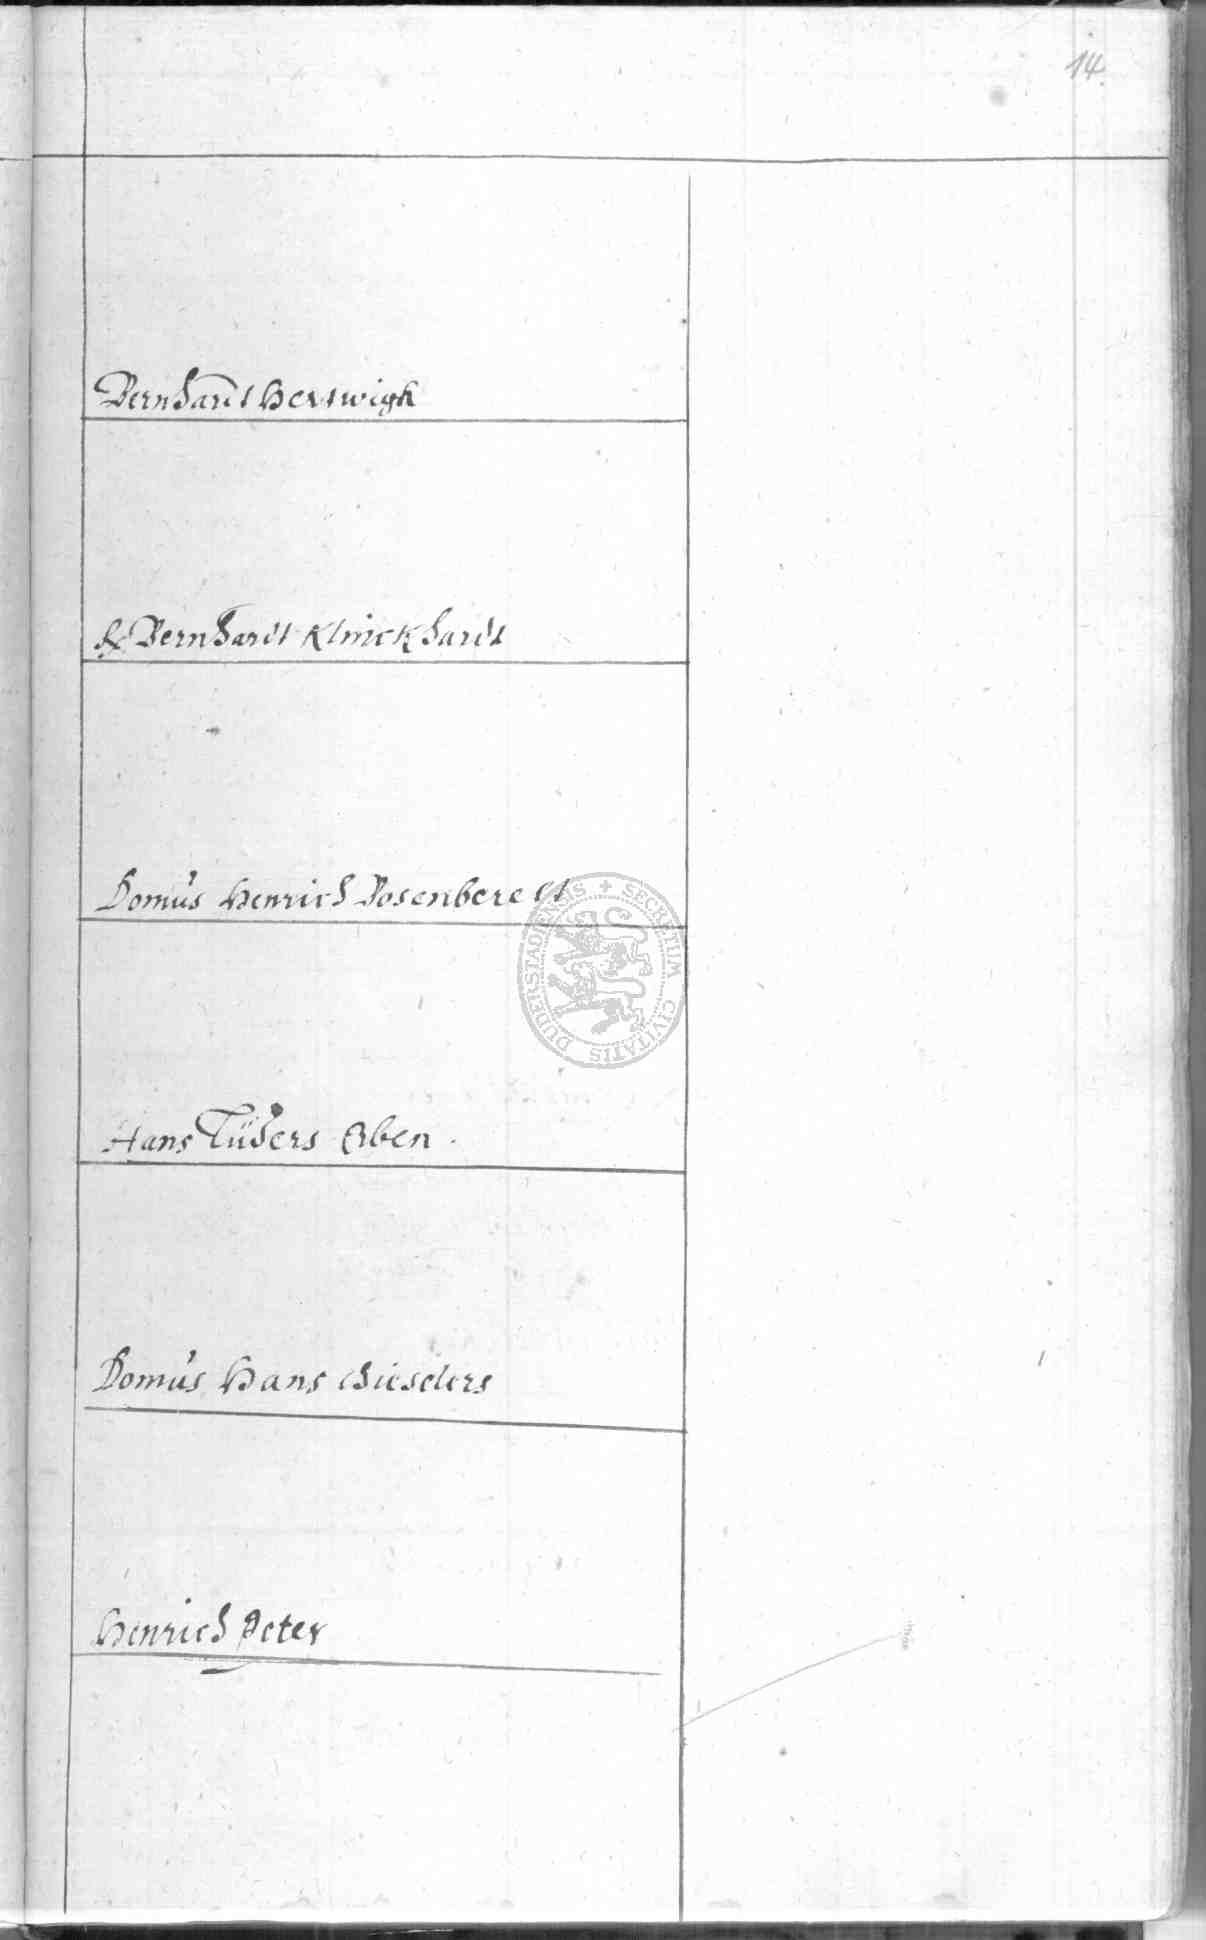 14
Bernhardt Hertwigk
Bernhardt Klinckhardt
Domus Henrich
SECRETUM CIVITATIS DUDERSTADIENSIS
Hans Erben
Domus Hans Gieselers
Henrich Peter